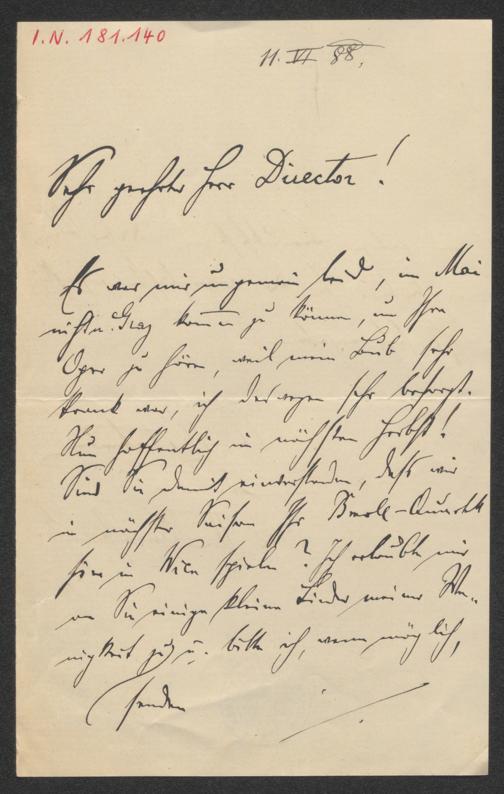 I.N. 181.140
11. VI 88.
Sehr geehrter Herr Director!
Es war mir ungemein leid, im Mai
nicht n. Graz kom̅en zu können, um Ihre
Oper zu hören, weil mein Bub sehr
krank war, ich deswegen sehr besorgt.
Nun hoffentlich im nächsten Herbst!
Sind Sie damit einverstanden, daß wir
in nächster Saison Ihr Quartett
hier in Wien spielen? Ich erlaubte mir
an Sie einige kleine Lieder meiner We-
nigkeit zu u. bitte ich, wenn möglich,
senden